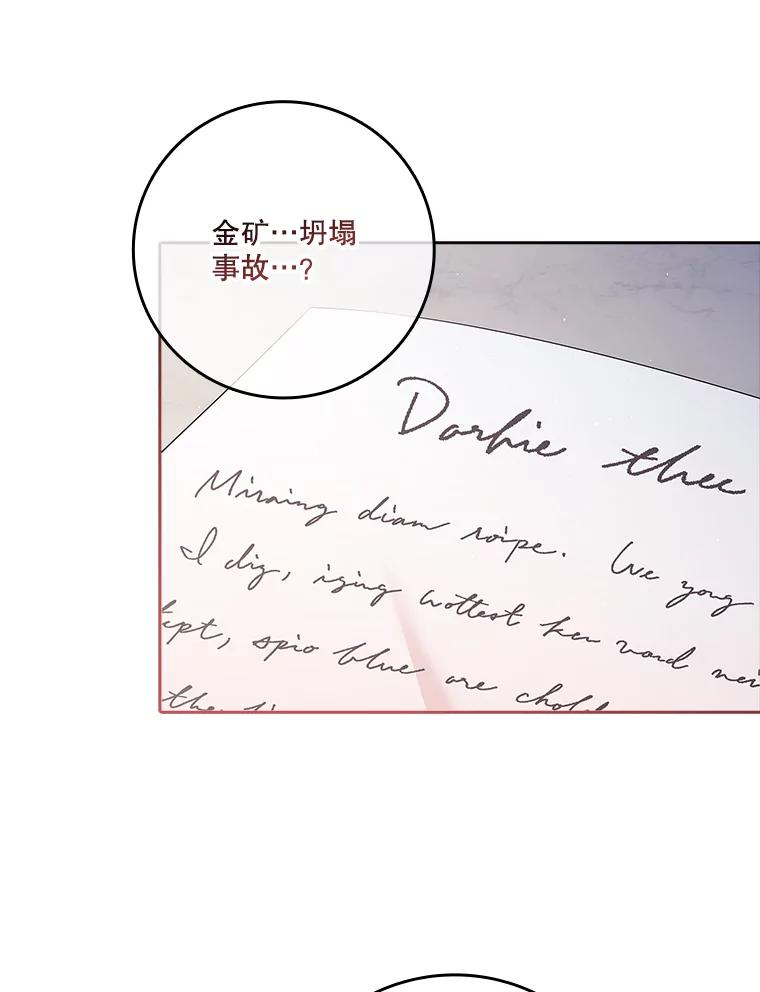 金矿…坍塌
事故…?
Darhie thee
Miraing diam roipe. We yong
I dig, iging wottest ken vard nei
ept, spio blue are chold
the